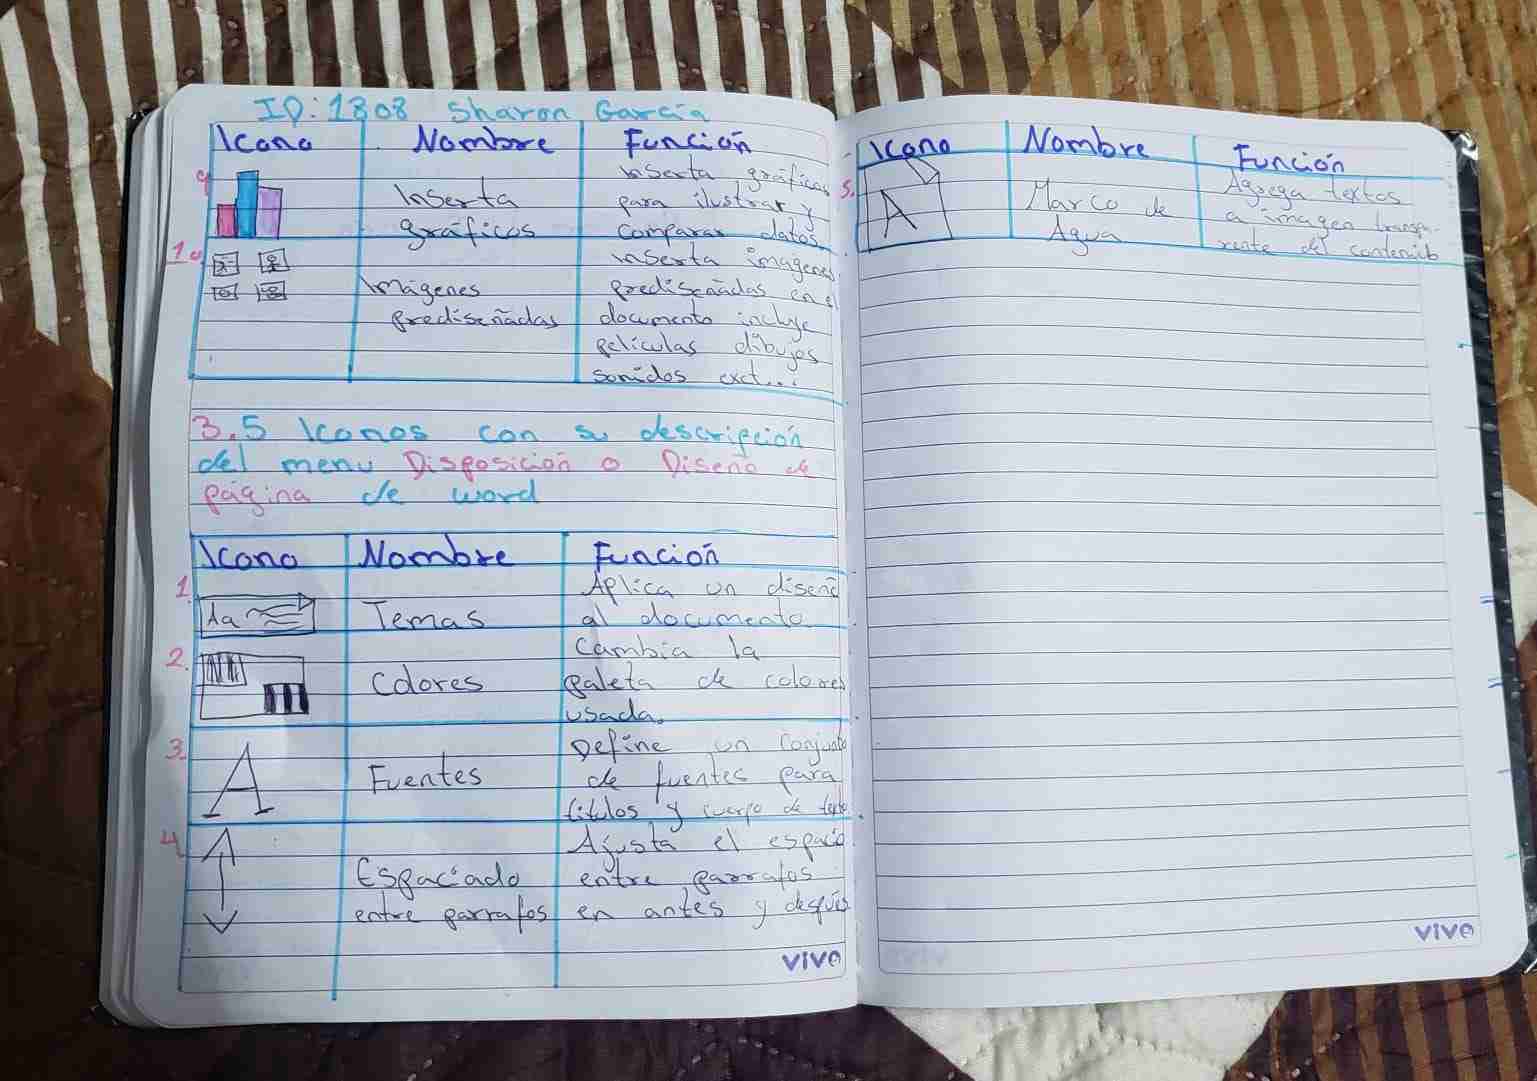 ID: 1308 Sharon García
Icono Nombre Función
9 Inserta gráficos
Inserta para ilustrar y
gráficos comparar datos
10 Inserta imagenes
Imágenes prediseñadas en el
prediseñadas documento incluye
películas dibujos
sonidos exct...
3.5 Iconos con su descripción
del menu Disposición o Diseño de
página de word
Icono Nombre Función
1. Aplica un diseño
Aa Temas al documento
2. Cambia la
Colores paleta de colores
usada.
3. Define un conjunto
A Fuentes de fuentes para
titulos y cuerpo de texto
4. Ajusta el espacio
Espaciado entre parrafos
entre parrafos en antes y después
vivo
Icono Nombre Función
5. Agrega textos
A Marco de a imagen transpa-
Agua rente del contenido
vivo